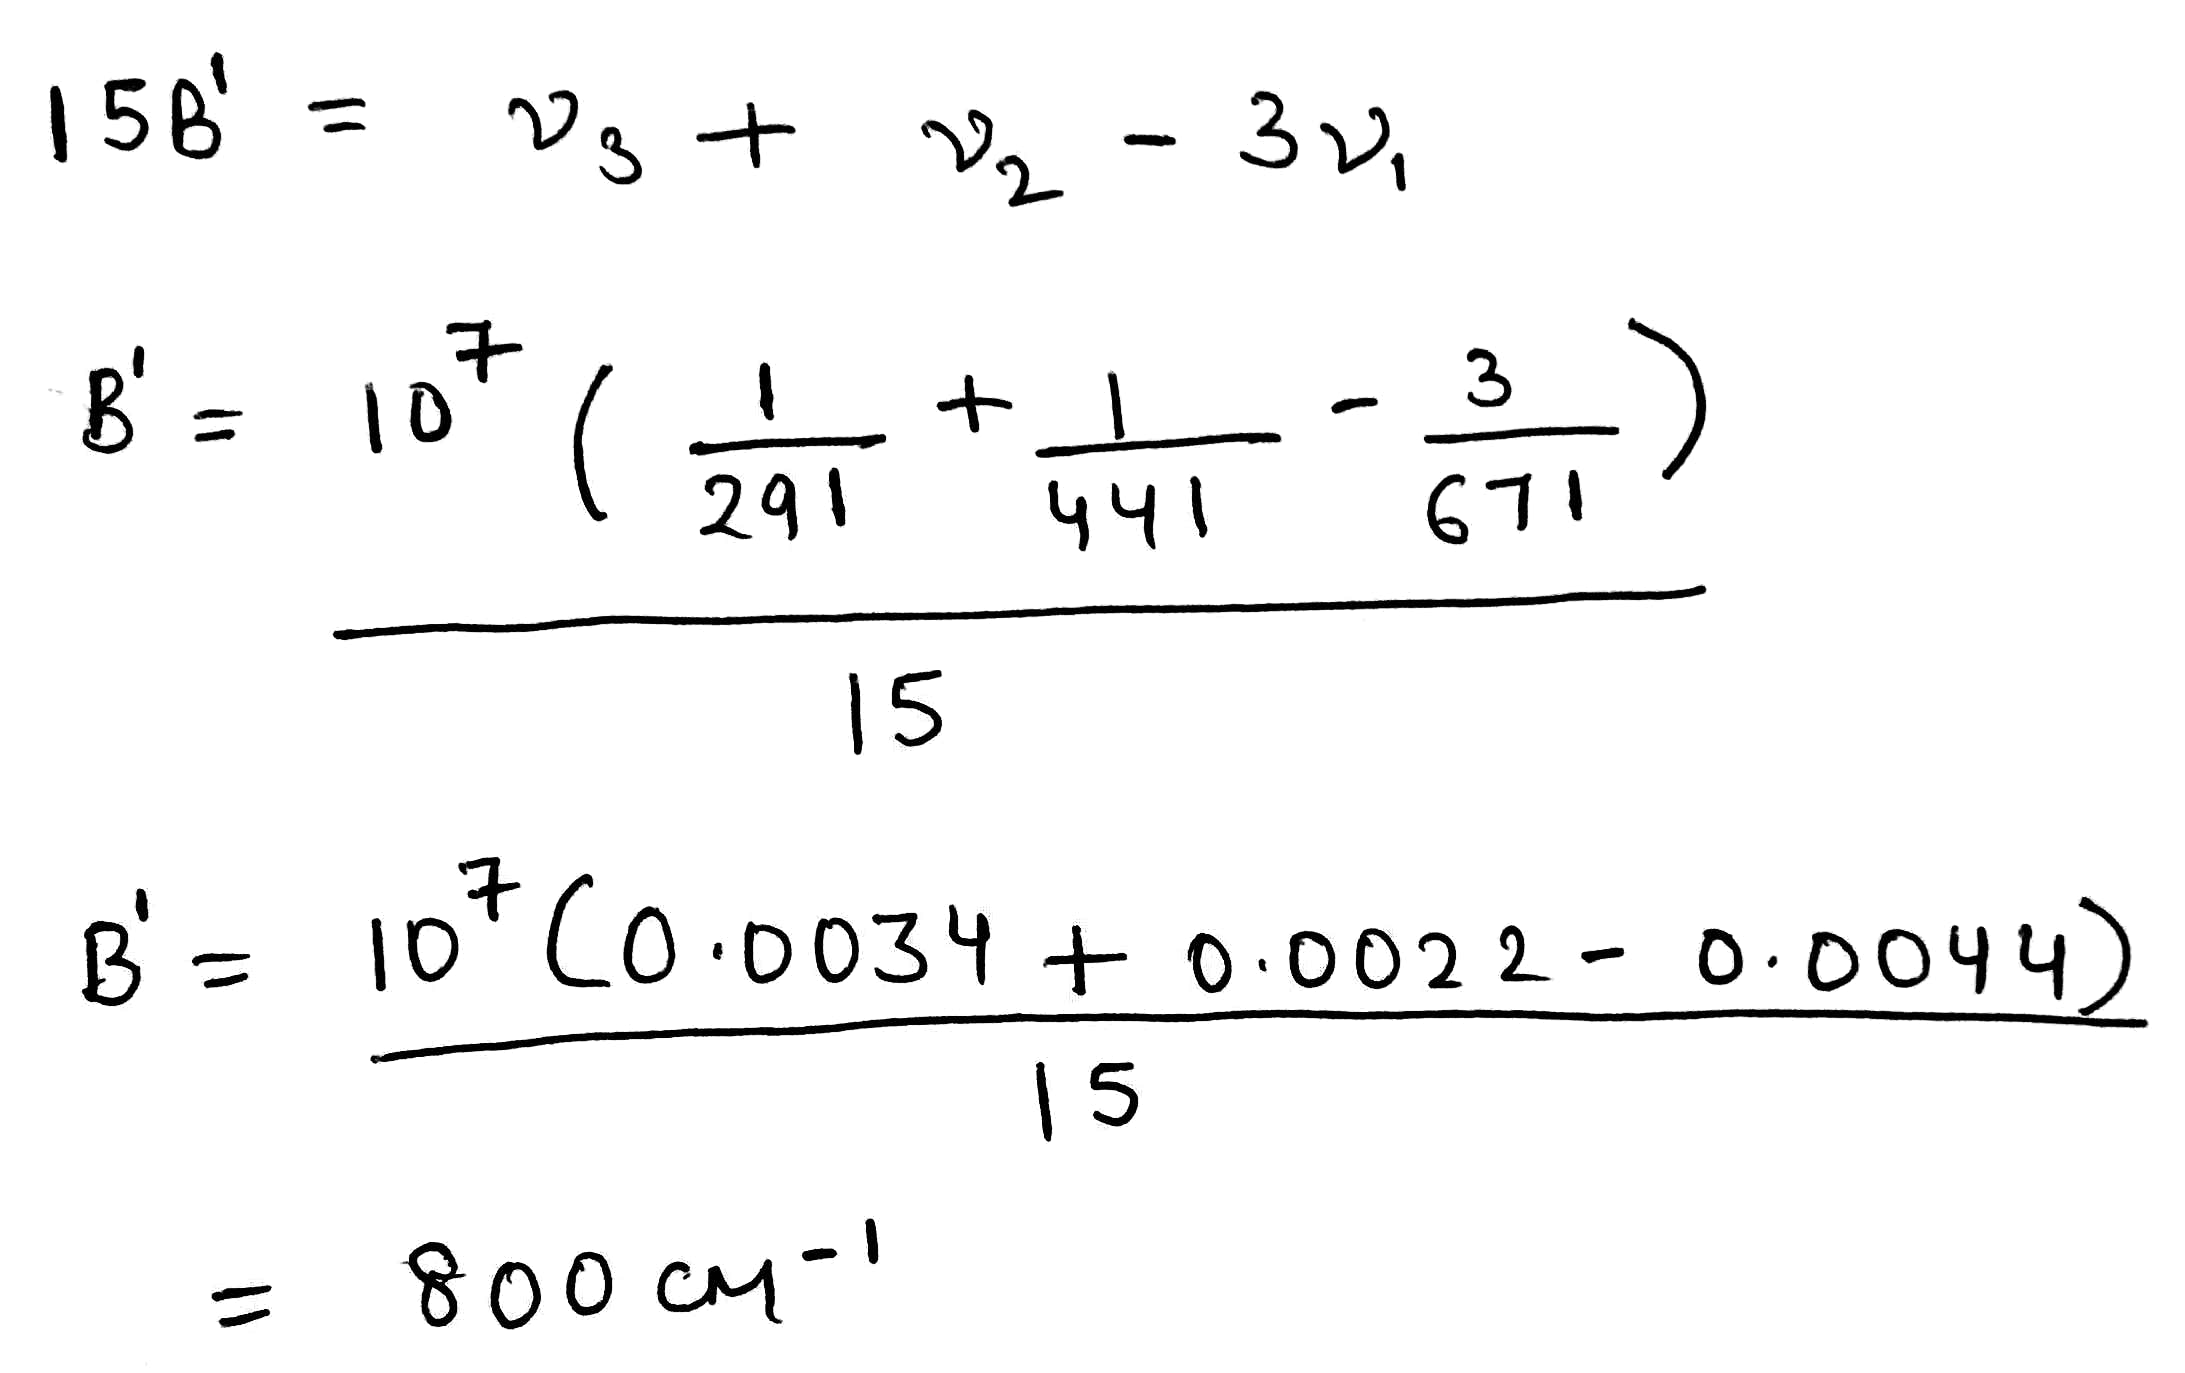 15B' = ν₃ + ν₂ - 3ν₁
B' = 10⁷ ( 1/291 + 1/441 - 3/671 ) / 15
B' = 10⁷ (0.0034 + 0.0022 - 0.0044) / 15
= 800 cm⁻¹